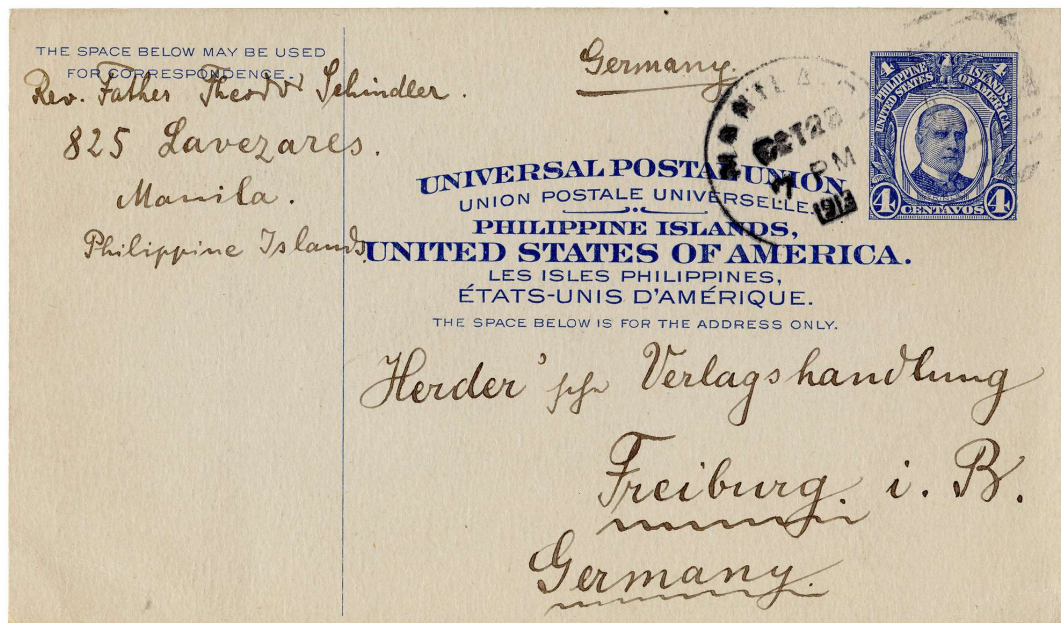 THE SPACE BELOW MAY BE USED
FOR CORRESPONDENCE.
Rev. Father Theodor Schindler.
825 Lavezares.
Manila.
Philippine Islands.
Germany.
4 4
PHILIPPINE ISLANDS.
UNITED STATES OF AMERICA.
4 CENTAVOS 4
MANILA
OCT 28
7 PM
1913
UNIVERSAL POSTAL UNION,
UNION POSTALE UNIVERSELLE.
PHILIPPINE ISLANDS,
UNITED STATES OF AMERICA.
LES ISLES PHILIPPINES,
ÉTATS-UNIS D'AMÉRIQUE.
THE SPACE BELOW IS FOR THE ADDRESS ONLY.
Herder'sche Verlagshandlung
Freiburg. i. B.
Germany.